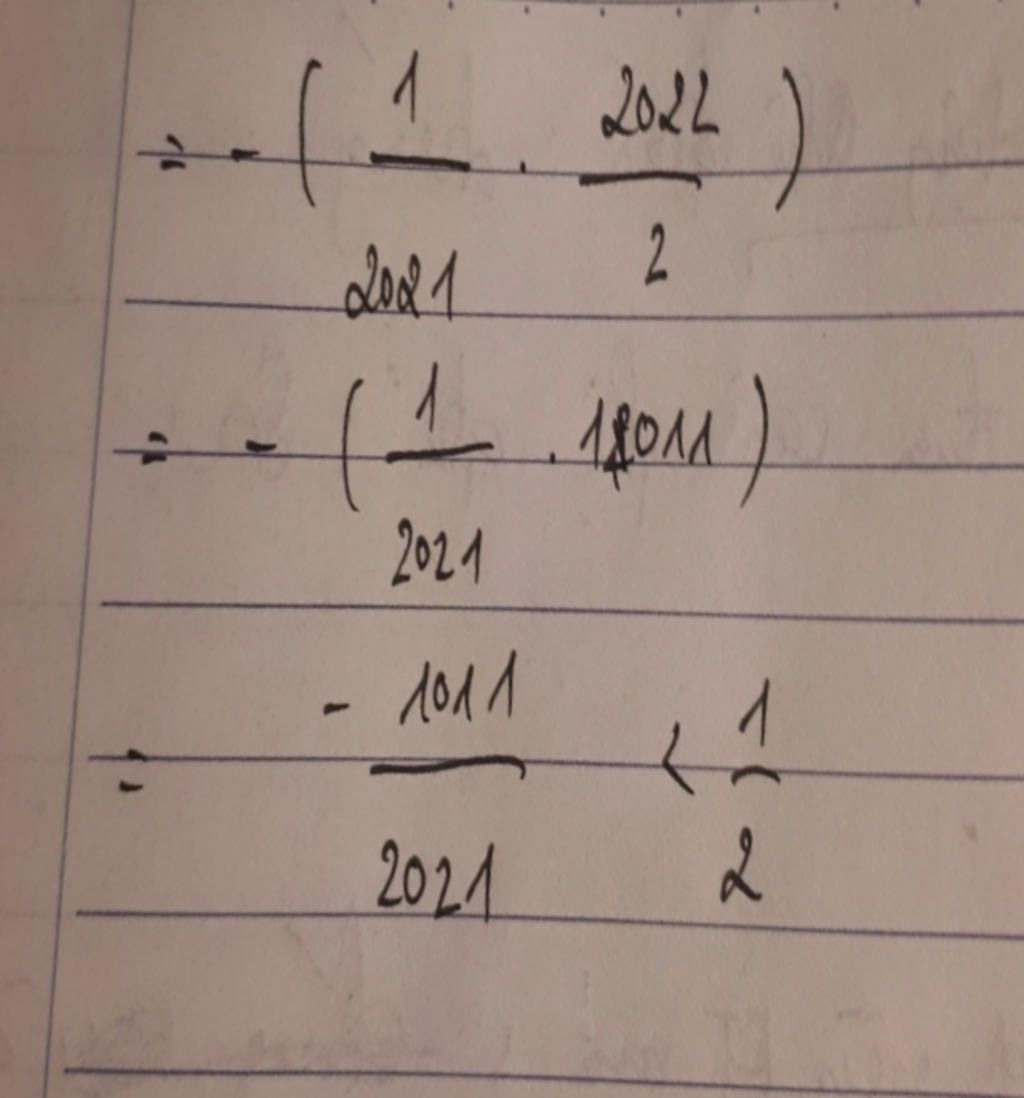 = - ( 1/2021 . 2022/2 )
= - ( 1/2021 . 1011 )
= - 1011/2021 < 1/2